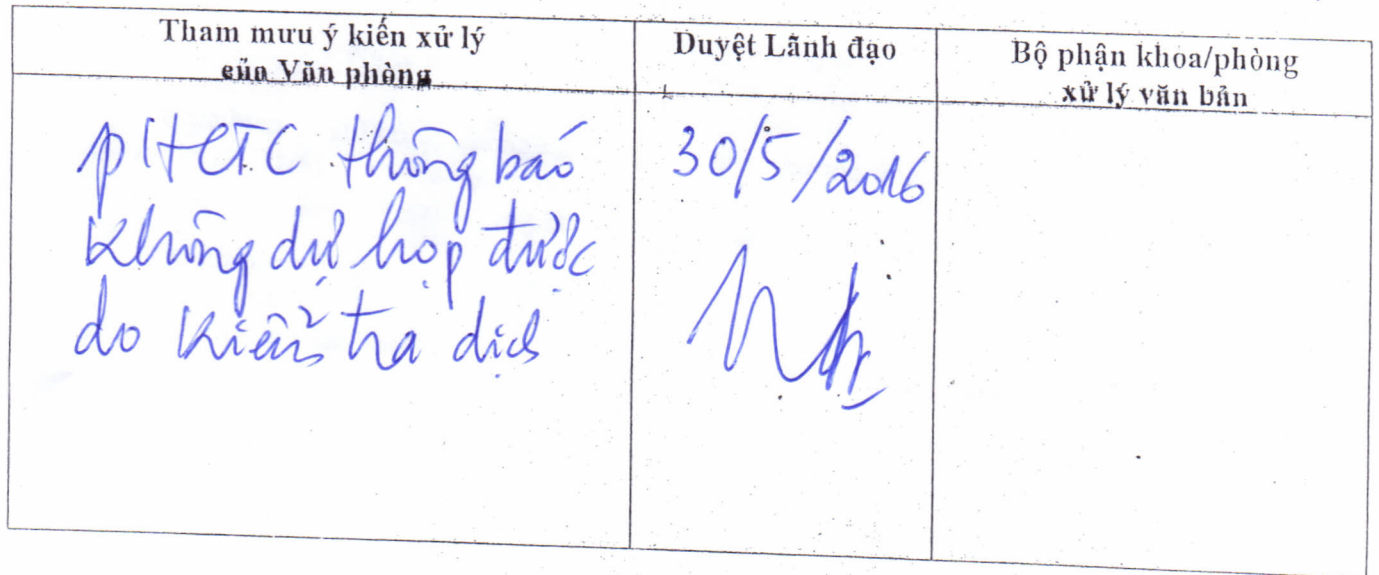 Tham mưu ý kiến xử lý
của Văn phòng
Duyệt Lãnh đạo
Bộ phận khoa/phòng
xử lý văn bản
pHCTC thông báo
không dự họp được
do kiểm tra dịch
30/5/2016